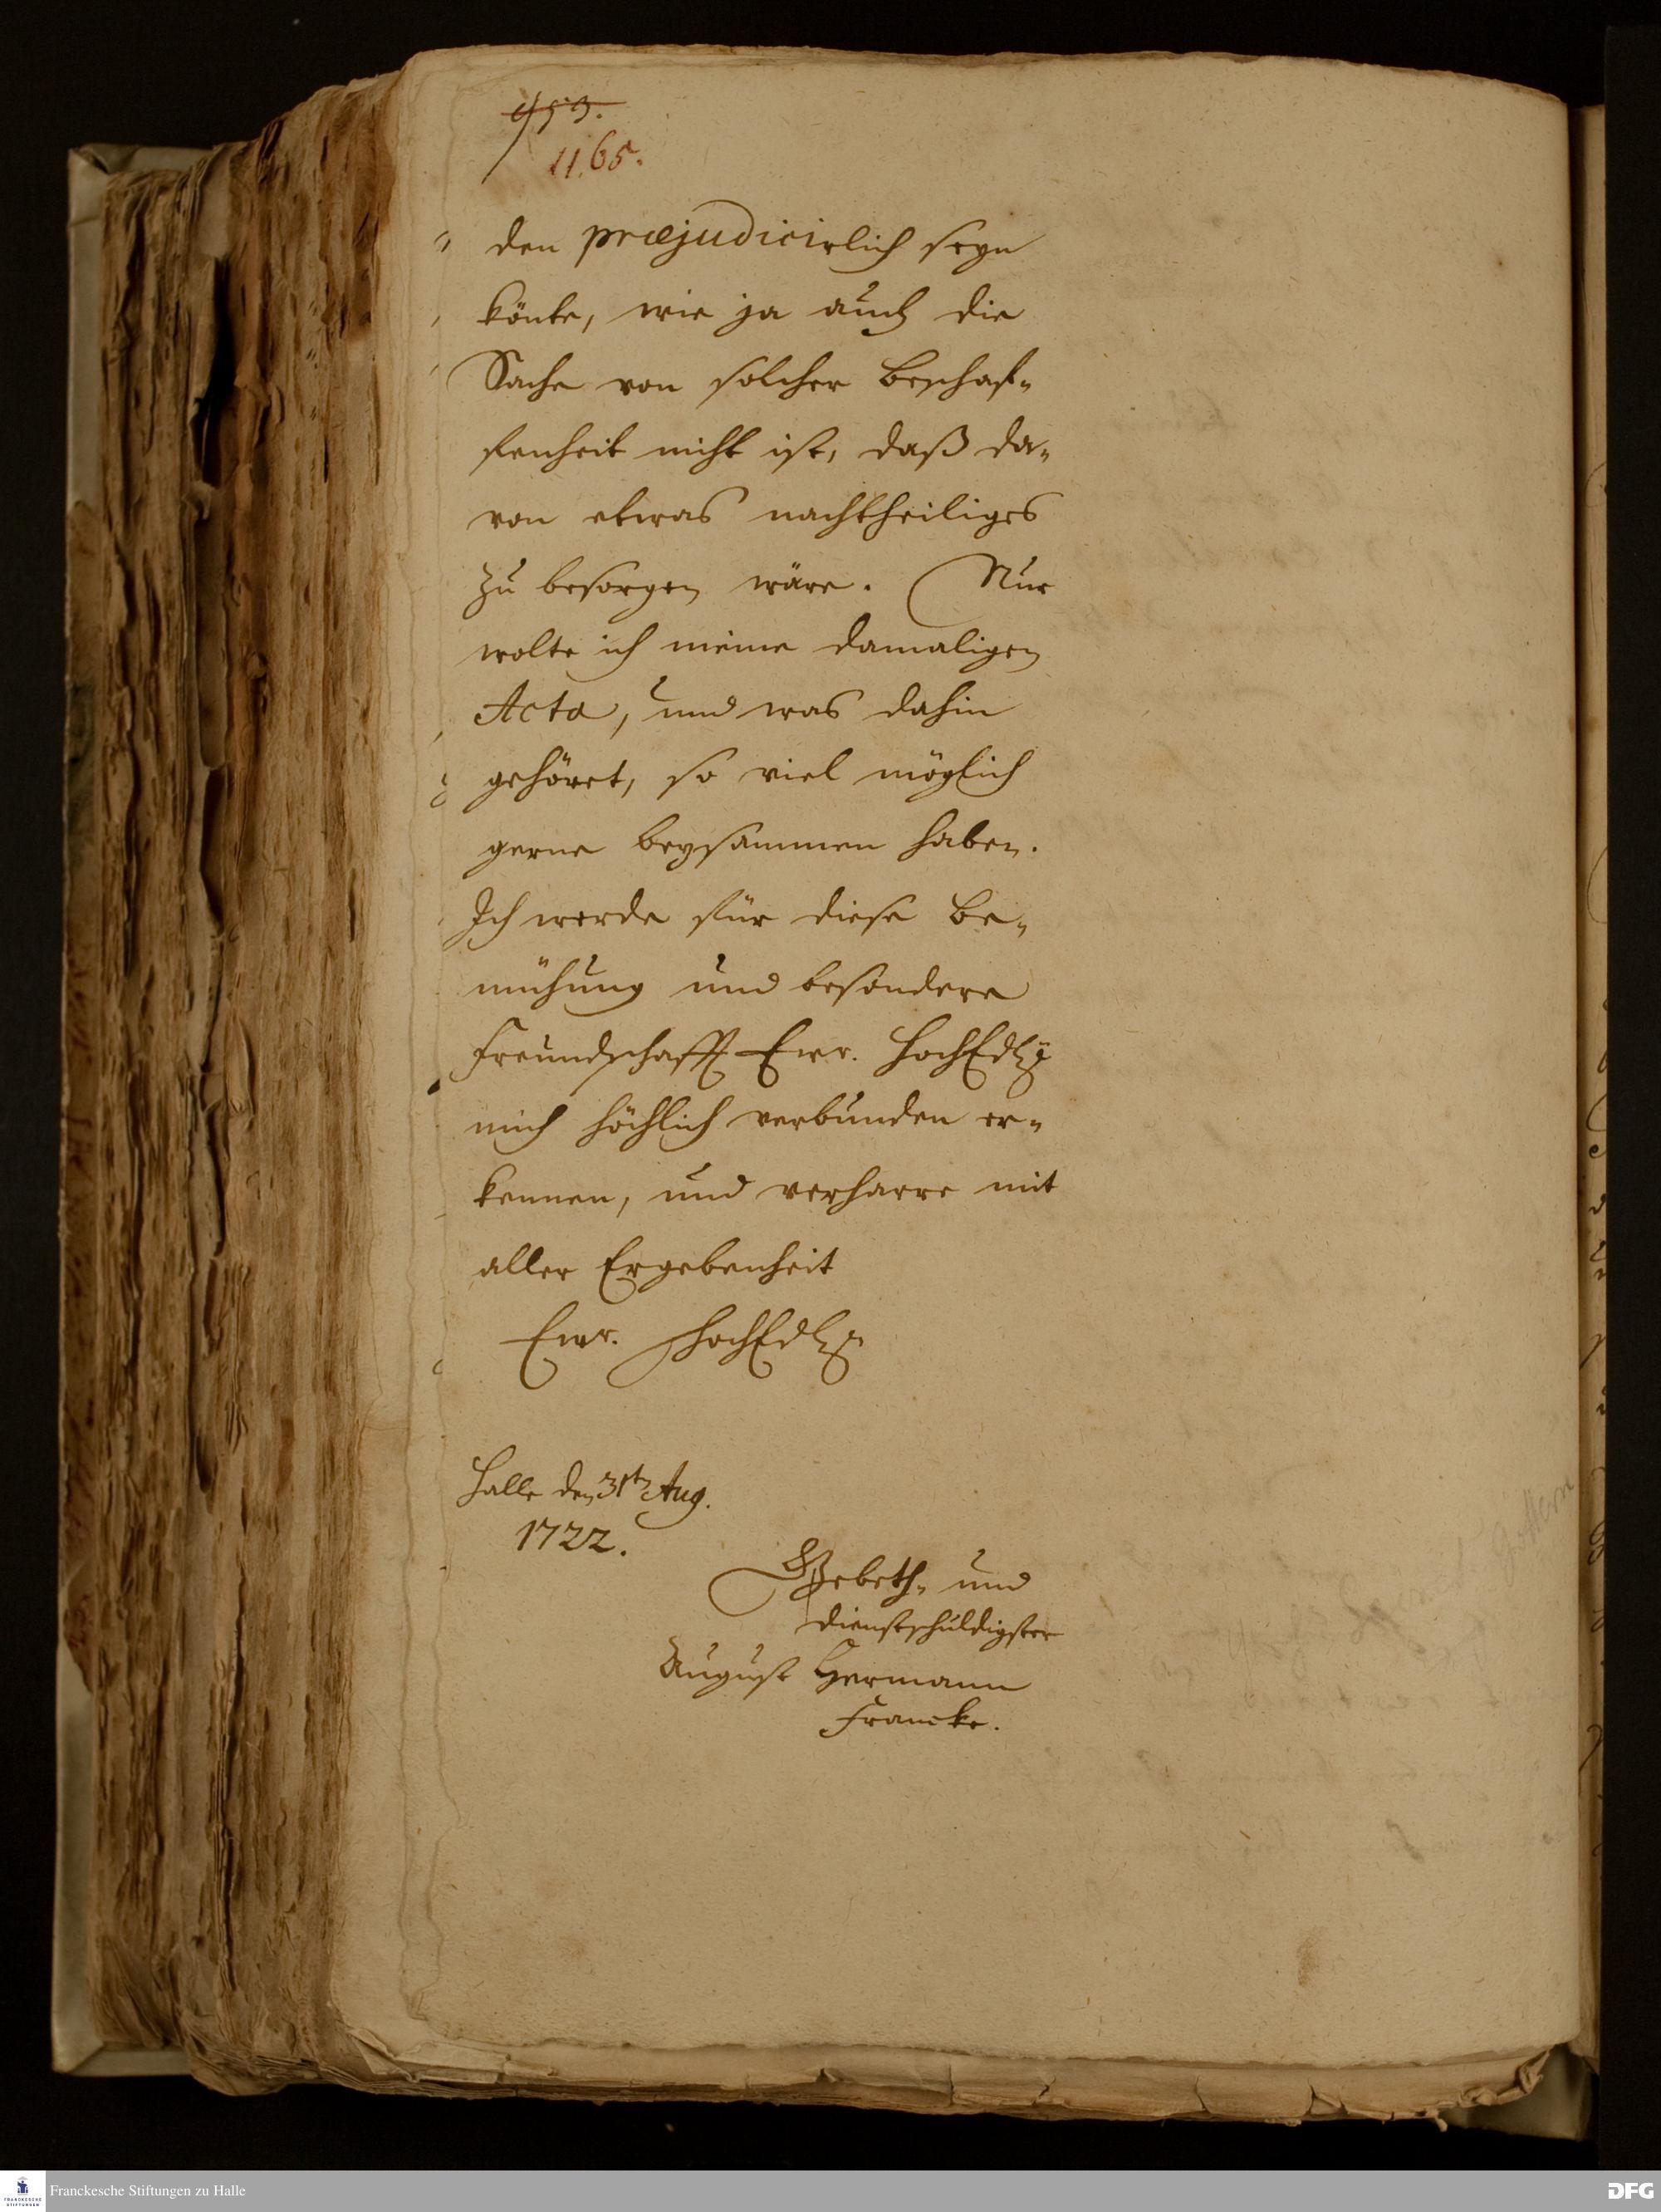 953.
1165.
den præjudicirlich seyn
könte, wie ja auch die
Sache von solcher Beschaf-
fenheit nicht ist, daß da-
von etwas nachtheiliges
zu besorgen wäre. Nur
wolte ich meine damaligen
Acta, und was dahin
gehöret, so viel möglich
gerne beysammen haben.
Ich werde für diese Be-
mühung und besondere
Freundschafft Ewr. HochEdl.
mich höchlich verbunden er-
kennen, und verharre mit
aller Ergebenheit
Ewr. HochEdl.
Halle den 31ten Aug.
1722.
Gebeth- und
dienstschuldigster
August Hermann
Francke.
FRANCKESCHE
STIFTUNGEN
Franckesche Stiftungen zu Halle
DFG